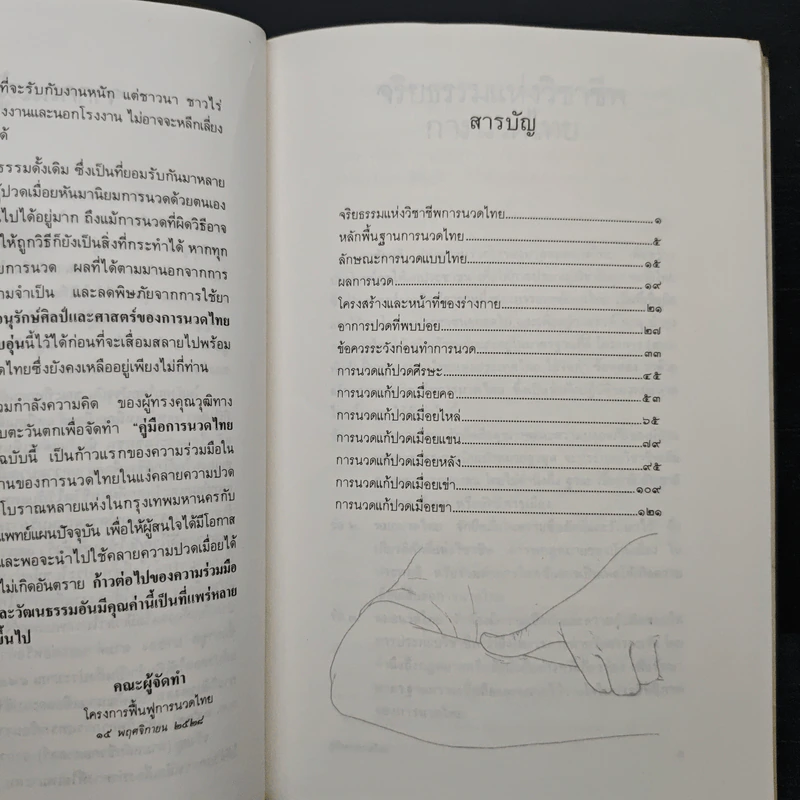 ที่จะรับกับงานหนัก แต่ชาวนา ชาวไร่
งงานและนอกโรงงาน ไม่อาจจะหลีกเลี่ยง
ด้
ธรรมดั้งเดิม ซึ่งเป็นที่ยอมรับกันมาหลาย
ปวดเมื่อยหันมานิยมการนวดด้วยตนเอง
นไปได้อยู่มาก ถึงแม้การนวดที่ผิดวิธีอาจ
ให้ถูกวิธีก็ยังเป็นสิ่งที่กระทำได้ หากทุก
ยการนวด ผลที่ได้ตามมานอกจากการ
ามจำเป็น และลดพิษภัยจากการใช้ยา
อนุรักษ์ศิลป์และศาสตร์ของการนวดไทย
บอุ่นนี้ไว้ได้ก่อนที่จะเสื่อมสลายไปพร้อม
ดไทยซึ่งยังคงเหลืออยู่เพียงไม่กี่ท่าน
วมกำลังความคิด ของผู้ทรงคุณวุฒิทาง
บตะวันตกเพื่อจัดทำ "คู่มือการนวดไทย
ฉบับนี้ เป็นก้าวแรกของความร่วมมือใน
านของการนวดไทยในแง่คลายความปวด
โบราณหลายแห่งในกรุงเทพมหานครกับ
แพทย์แผนปัจจุบัน เพื่อให้ผู้สนใจได้มีโอกาส
และพอจะนำไปใช้คลายความปวดเมื่อยได้
ไม่เกิดอันตราย ก้าวต่อไปของความร่วมมือ
ละวัฒนธรรมอันมีคุณค่านี้เป็นที่แพร่หลาย
ขึ้นไป
คณะผู้จัดทำ
โครงการฟื้นฟูการนวดไทย
๑๕ พฤศจิกายน ๒๕๒๘
สารบัญ
จริยธรรมแห่งวิชาชีพการนวดไทย ๑
หลักพื้นฐานการนวดไทย ๕
ลักษณะการนวดแบบไทย ๑๕
ผลการนวด ๑๙
โครงสร้างและหน้าที่ของร่างกาย ๒๑
อาการปวดที่พบบ่อย ๒๗
ข้อควรระวังก่อนทำการนวด ๓๓
การนวดแก้ปวดศีรษะ ๔๕
การนวดแก้ปวดเมื่อยคอ ๕๓
การนวดแก้ปวดเมื่อยไหล่ ๖๕
การนวดแก้ปวดเมื่อยแขน ๗๙
การนวดแก้ปวดเมื่อยหลัง ๙๕
การนวดแก้ปวดเมื่อยเข่า ๑๐๙
การนวดแก้ปวดเมื่อยขา ๑๒๑